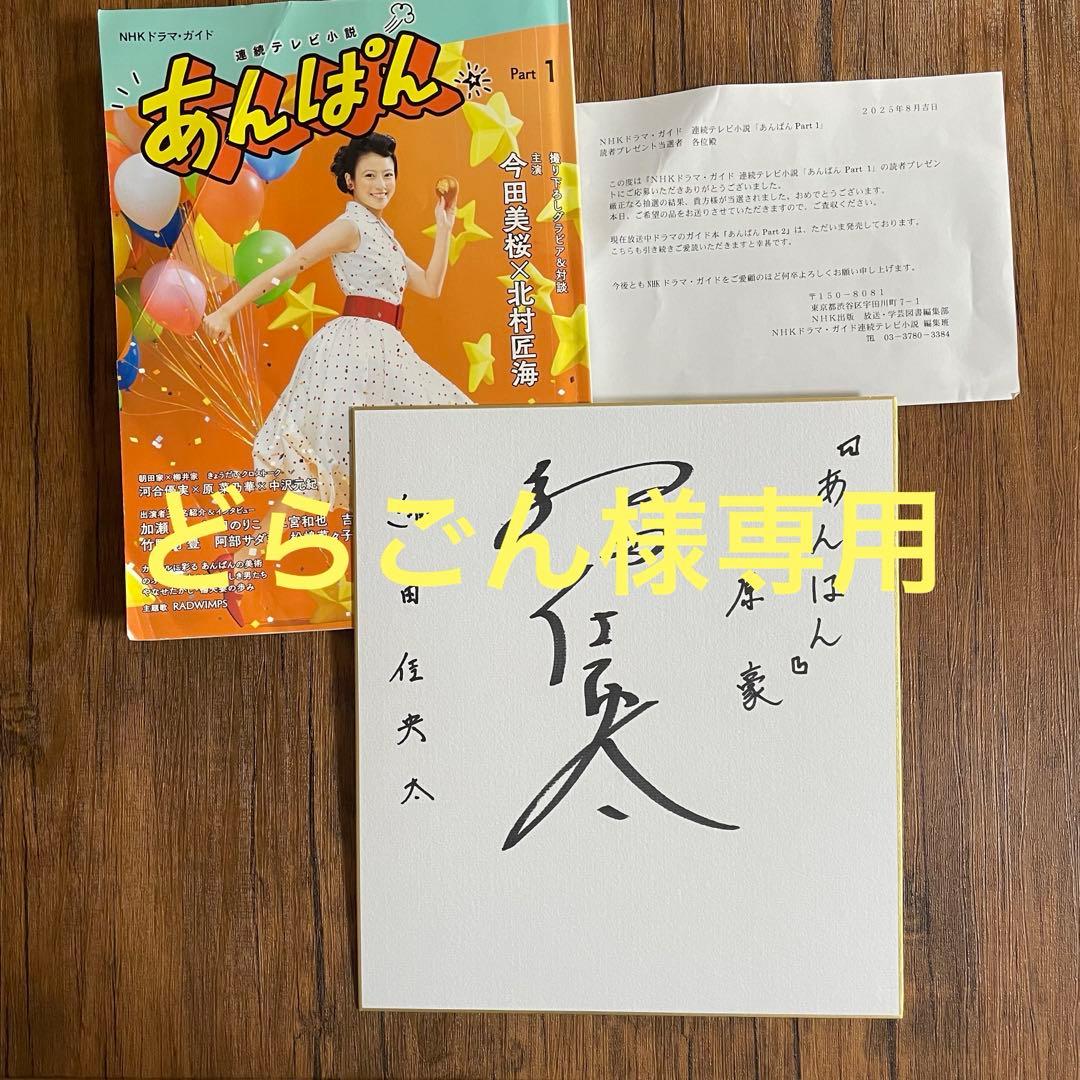 NHKドラマ・ガイド
連続テレビ小説
あんぱん
Part 1
撮り下ろしグラビア&対談
主演
今田美桜×北村匠海
朝田家×柳井家 きょうだいクロストーク
河合優実×原菜乃華×中沢元紀
出演者
紹介&インタビュー
加瀬
のりこ
宮和也 吉
竹
豊 阿部サダ
々子
に彩る あんぱんの美術
しき男たち
やなせたかし
の歩み
主題歌 RADWIMPS
2025年8月吉日
NHKドラマ・ガイド 連続テレビ小説「あんぱん Part 1」
読者プレゼント当選者 各位殿
この度は『NHKドラマ・ガイド 連続テレビ小説「あんぱん Part 1」の読者プレゼン
トにご応募いただきありがとうございました。
厳正なる抽選の結果、貴方様が当選されました。おめでとうございます。
本日、ご希望の品をお送りさせていただきますので、ご査収ください。
現在放送中ドラマのガイド本「あんぱん Part 2」は、ただいま発売しております。
こちらも引き続きご愛読いただきますと幸甚です。
今後とも NHK ドラマ・ガイドをご愛顧のほど何卒よろしくお願い申し上げます。
〒150-8081
東京都渋谷区宇田川町7-1
NHK出版 放送・学芸図書編集部
NHKドラマ・ガイド連続テレビ小説 編集班
℡ 03-3780-3384
どらごん様専用
『あんぱん』
原 豪
田 佳央太